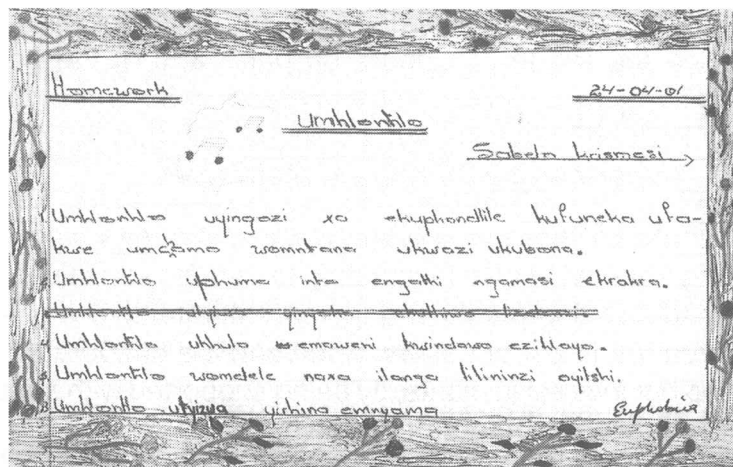 Homework 24-04-01
Umhlontlo
Sabeln krismesi
1. Umhlontlo uyingozi xa ekuphandlile kufuneka ufa-
kwe umchamo womntana ukwazi ukubona.
2. Umhlontlo uphuma inta engathi ngamasi ekrakra.
Umhlontlo
4. Umhlontlo ukhula emaweni kwindawo eziklayo.
5. Umhlontlo womelele naxa ilanga lilininzi ayitshi.
Umhlontlo utyiwa yirhina emnyama